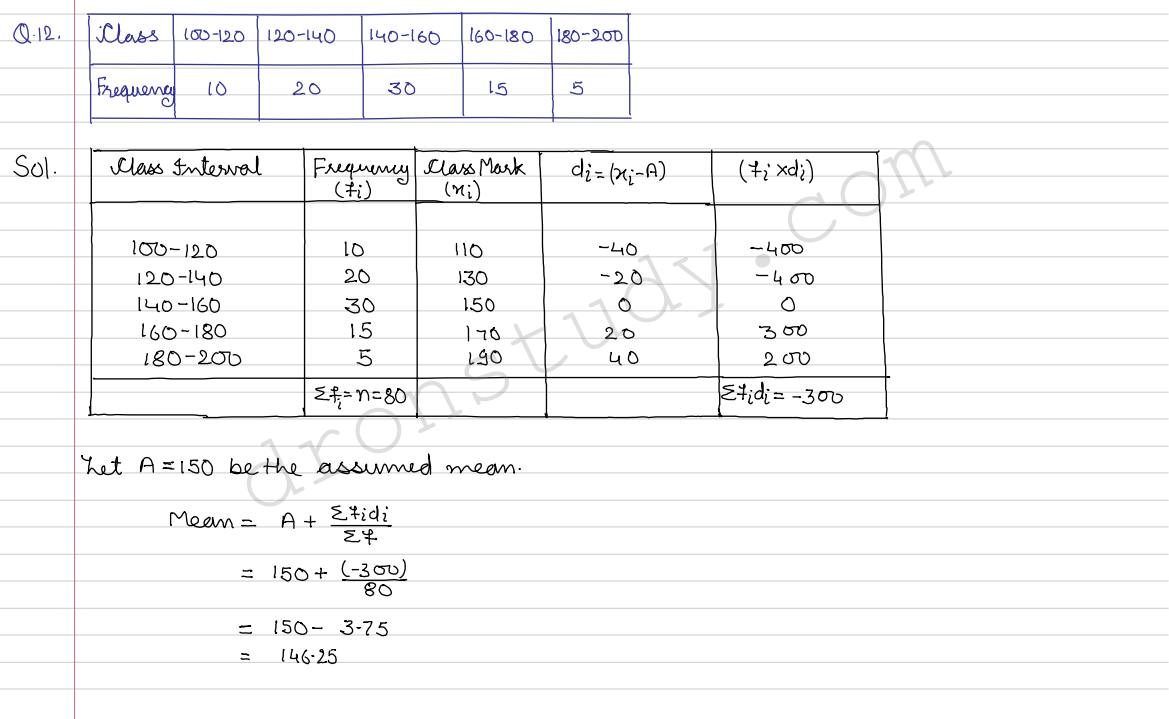 Q.12. Class 100-120 120-140 140-160 160-180 180-200
Frequency 10 20 30 15 5
Sol. Class Interval Frequency (fi) Class Mark (xi) di=(xi-A) (fi×di)
100-120 10 110 -40 -400
120-140 20 130 -20 -400
140-160 30 150 0 0
160-180 15 170 20 300
180-200 5 190 40 200
Σfi=n=80 Σfidi=-300
Let A=150 be the assumed mean.
Mean = A + Σfidi/Σf
= 150 + (-300)/80
= 150 - 3.75
= 146.25
dronstudy.com